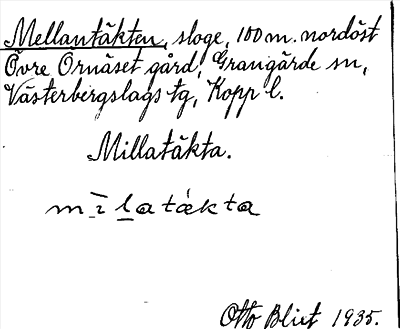 Mellantäkten, sloge, 100 m. nordöst
Övre Örnäset gård, Grangärde sn,
Västerbergslags tg, Kopp l.
Millatäkta.
mi̲l̲atäkta
Otto Blixt 1935.